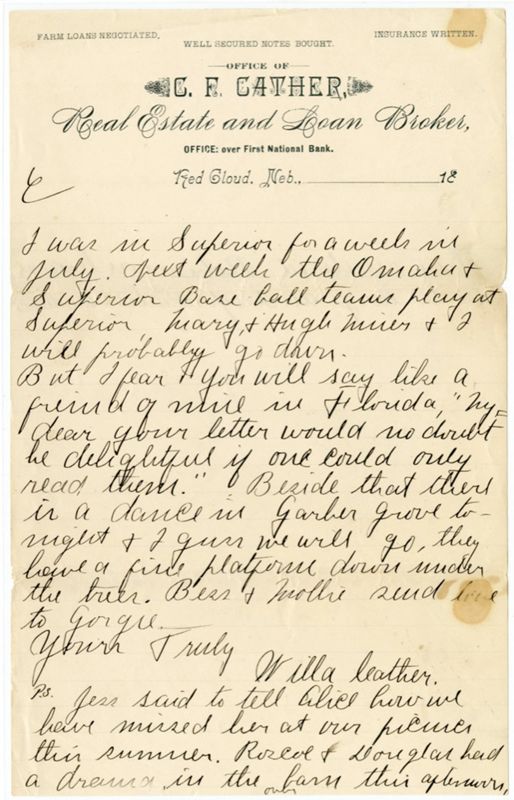 FARM LOANS NEGOTIATED.
WELL SECURED NOTES BOUGHT.
INSURANCE WRITTEN.
OFFICE OF
C. F. CATHER,
Real Estate and Loan Broker,
OFFICE: over First National Bank.
Red Cloud, Neb., 18
I was in Superior for a week in
July. Next week the Omaha &
Superior Base ball teams play at
Superior, Mary, & Hugh Miner & I
will probably go down.
But I fear you will say like a
freind of mine in Florida, "My=
dear your letter would no doubt
be delightful if one could only
read them." Beside that there
is a dance in Garber grove to-
night & I guss we will go, they
have a fine platform down under
the trees. Bess & Mollie send love
to Gorgie.
Yours Truly
Willa Cather.
P.S. Jess said to tell Alice how we
have missed her at our picnics
this summer. Roscoe & Douglas had
a drama in the barn this afternoon,
our